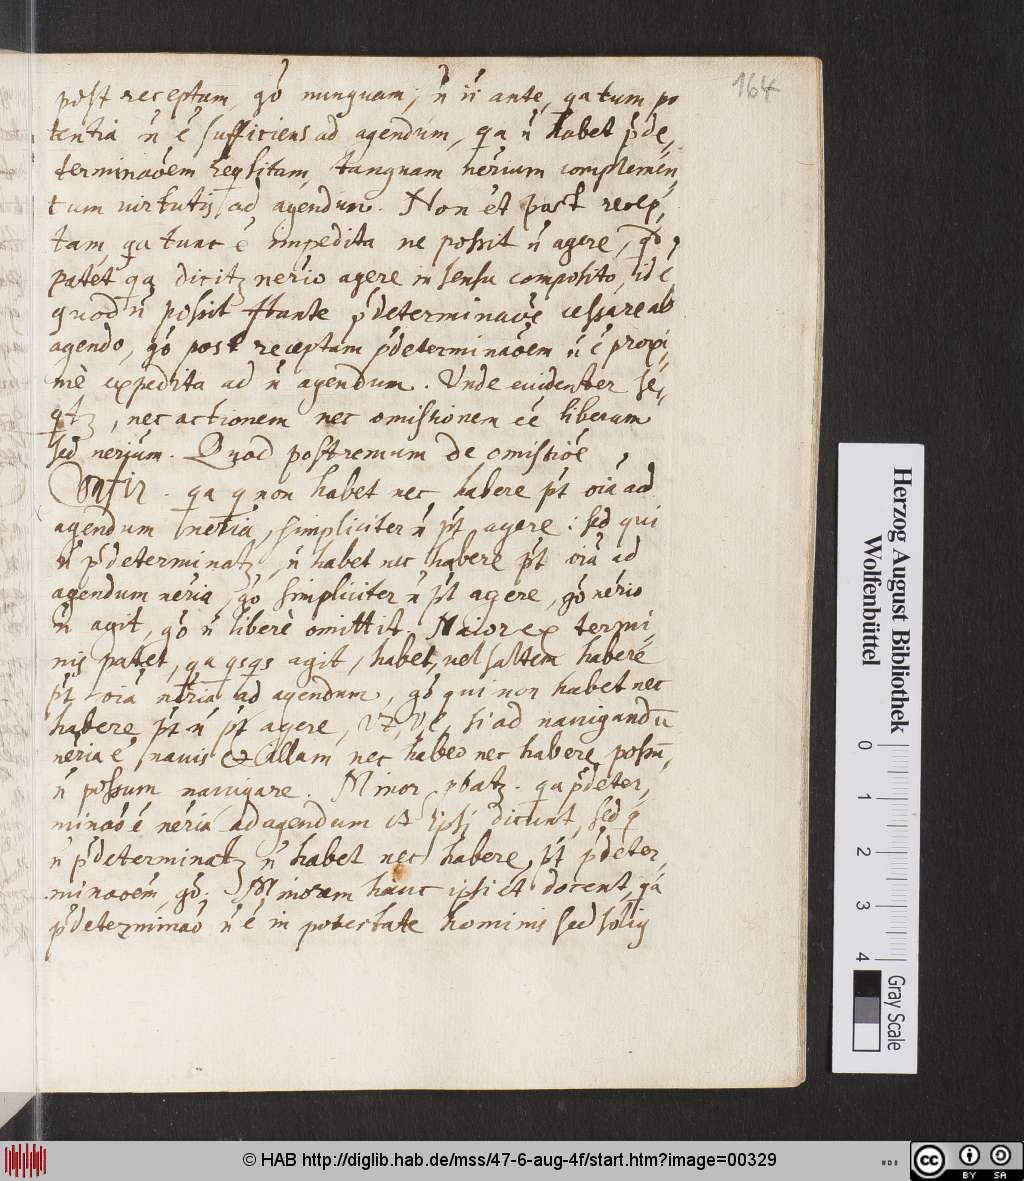 164
post receptam, gó nunquam, ń ii ante, qa tum po
tentia ń é sufficiens ad agendum, qa ń habet ṕde,,
terminaõem reqsitam, tanquam nérium complemen,,
tum virtutis ad agendum. Non et post recep,,
tam, qa tunc é impedita ne possit ń agere,
patet qa dicitz nério agere in sensu composito, id é
quod ń possit stante ṕdeterminaõe cessare ab
agendo, gó post receptam ṕdeterminaõem ń é proxi,,
mè expedita ad ń agendum. Unde evidenter se,,
qtz, nec actionem nec omissionem eé liberam
sed nerium. Quod postremum de omissióe
qa q non habet nec habere ṕt oiá ad
agendum neria, simpliciter ń ṕt agere: sed qui
ń ṕdeterminatz, ń habet nec habere ṕt oiá ad
agendum néria, gó simpliciter ń ṕt agere, gó nério
ń agit, gó ń liberè omittit. Maior ex termi,,
nis patet, qa qsqs agit, habet, vel saltem haberé
ṕt oiá néria ad agendum, gó qui non habet nec
habere ṕt ń ṕt agere, si ad navigandū
néria é navis & illam nec habeo nec habere possū,
ń possum navigare. Minor pbatz. qa ṕdeter,,
minaó é néria ad agendum ipsi dicunt, sed q
ń ṕdeterminatz ń habet nec habere ṕt ṕdeter,,
minaoem, gó. Minoram hanc ipsi et docent, qá
ṕdeterminaó ń é in potestate hominis sed solig
Herzog August Bibliothek
Wolfenbüttel
0 1 2 3 4
Gray Scale
© HAB http://diglib.hab.de/mss/47-6-aug-4f/start.htm?image=00329
cc BY SA